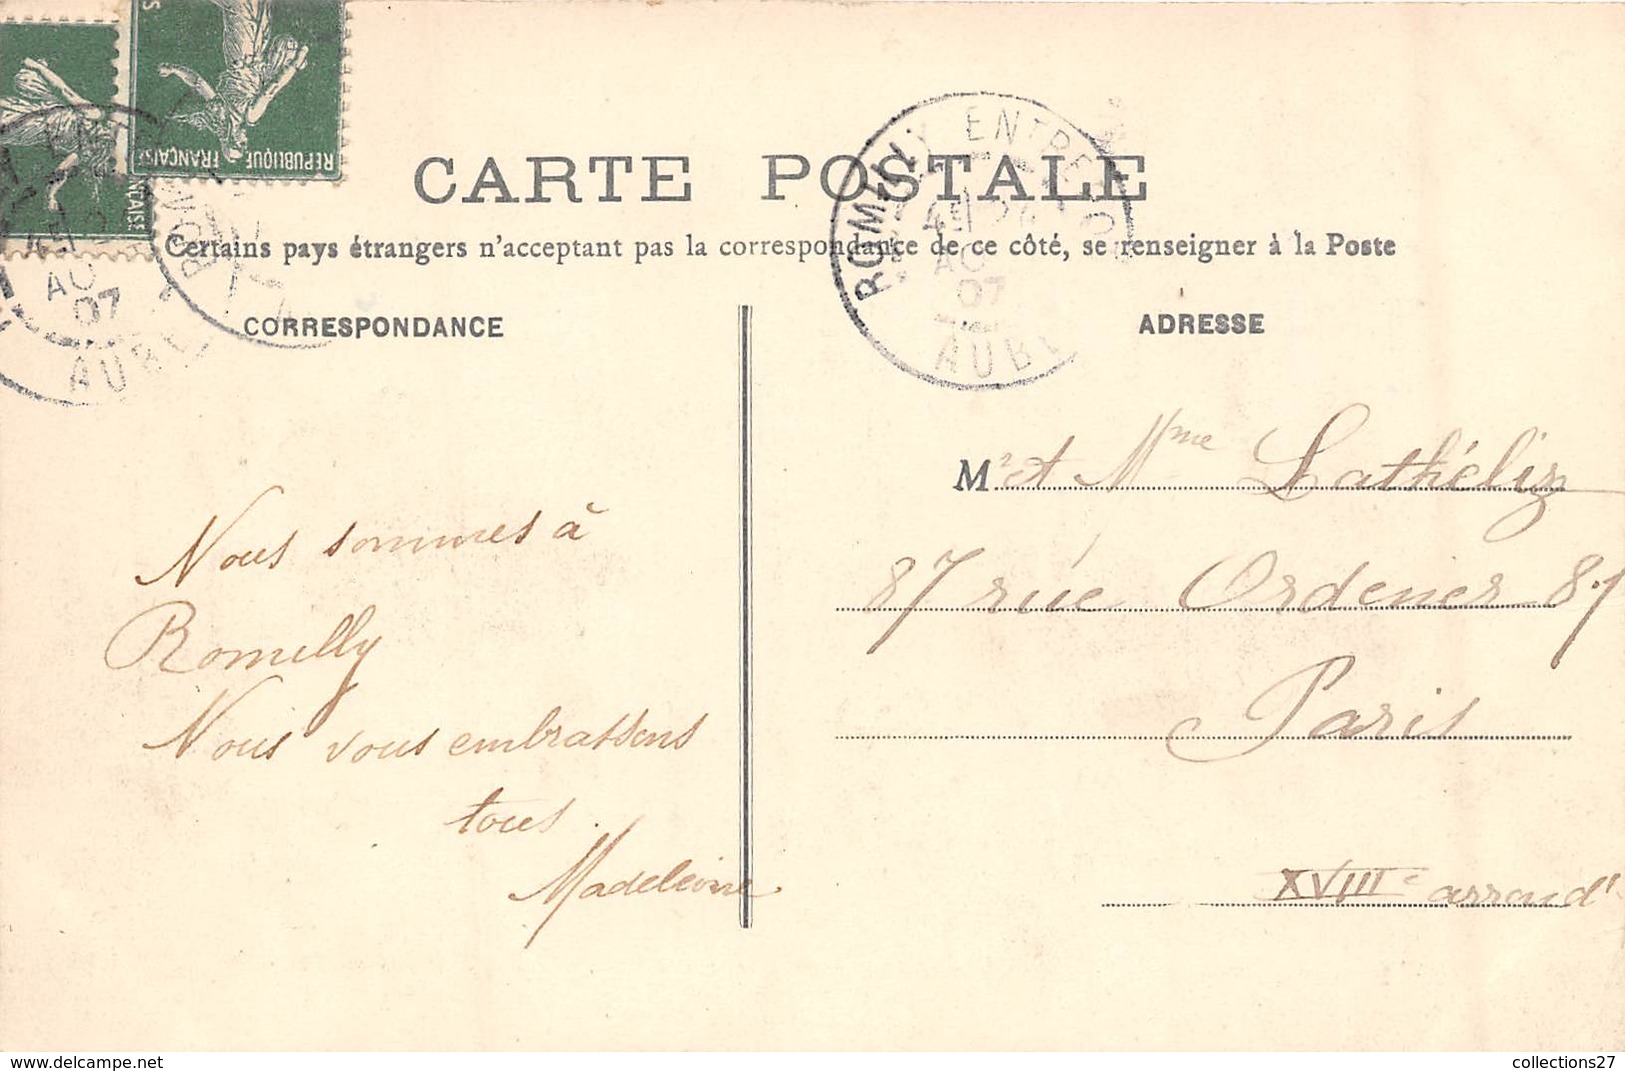 RÉPUBLIQUE FRANÇAISE
CARTE POSTALE
Certains pays étrangers n'acceptant pas la correspondance de ce côté, se renseigner à la Poste
ROMILLY
AO
07
AUBE
CORRESPONDANCE
Nous sommes à
Romilly
Nous vous embrassons
tous.
Madeleine
ADRESSE
Mr et Mme Lathéliz
87 rue Ordener 87
Paris
XVIIIe arrond!
delcampe.net
collections27